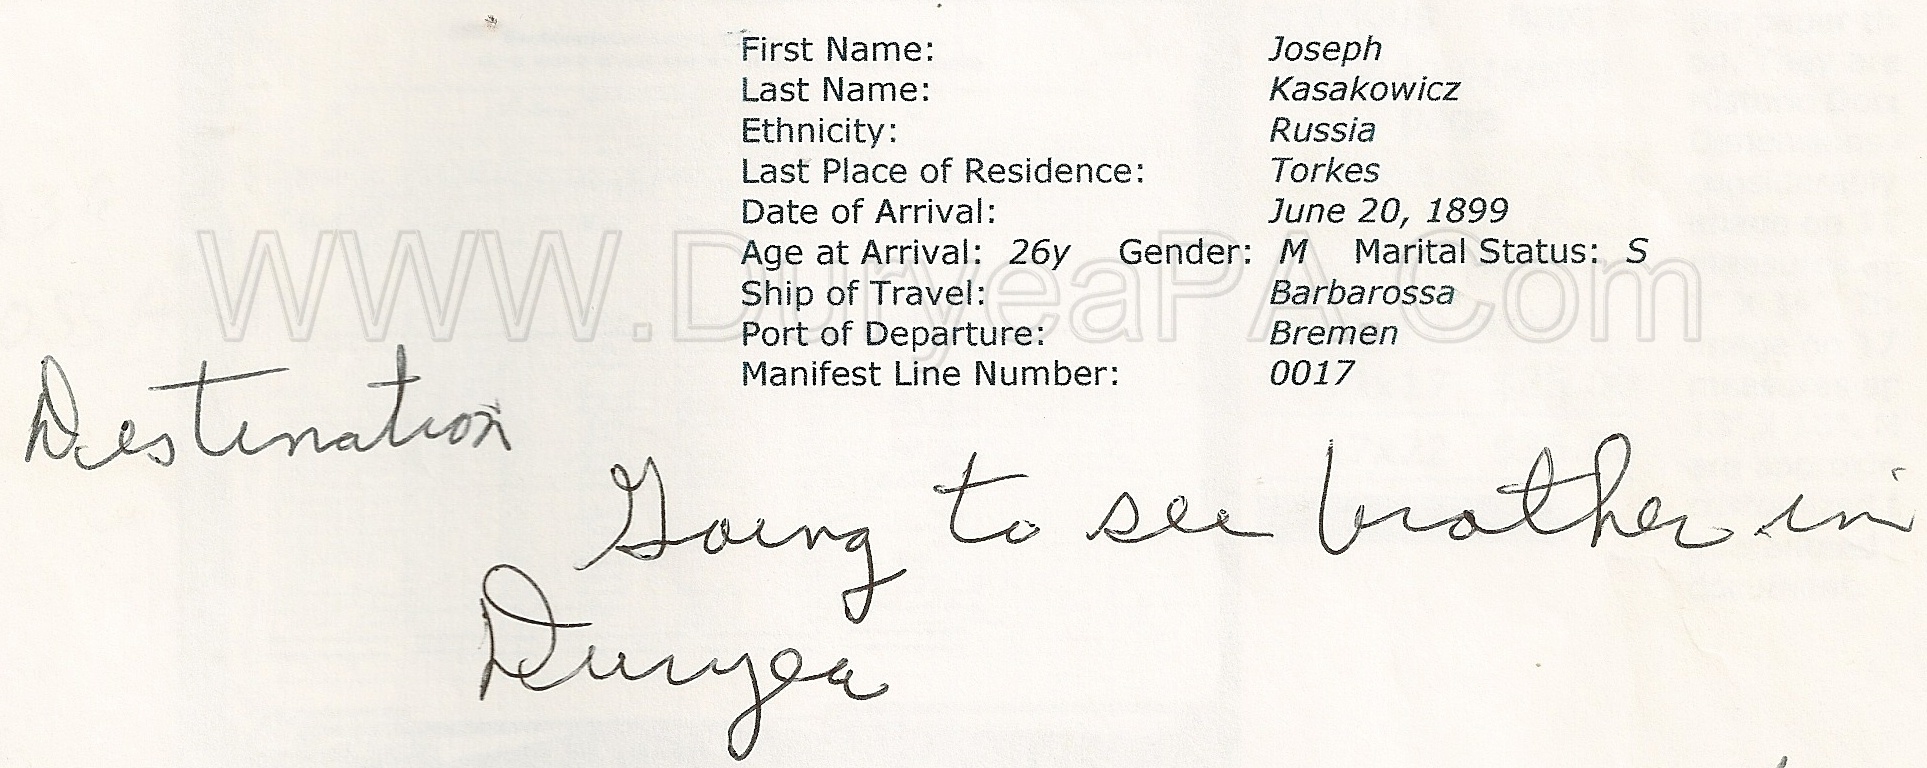 First Name: Joseph
Last Name: Kasakowicz
Ethnicity: Russia
Last Place of Residence: Torkes
Date of Arrival: June 20, 1899
Age at Arrival: 26y Gender: M Marital Status: S
www.DuryeaPA.Com
Ship of Travel: Barbarossa
Port of Departure: Bremen
Manifest Line Number: 0017
Destination
Going to see brother in
Duryea